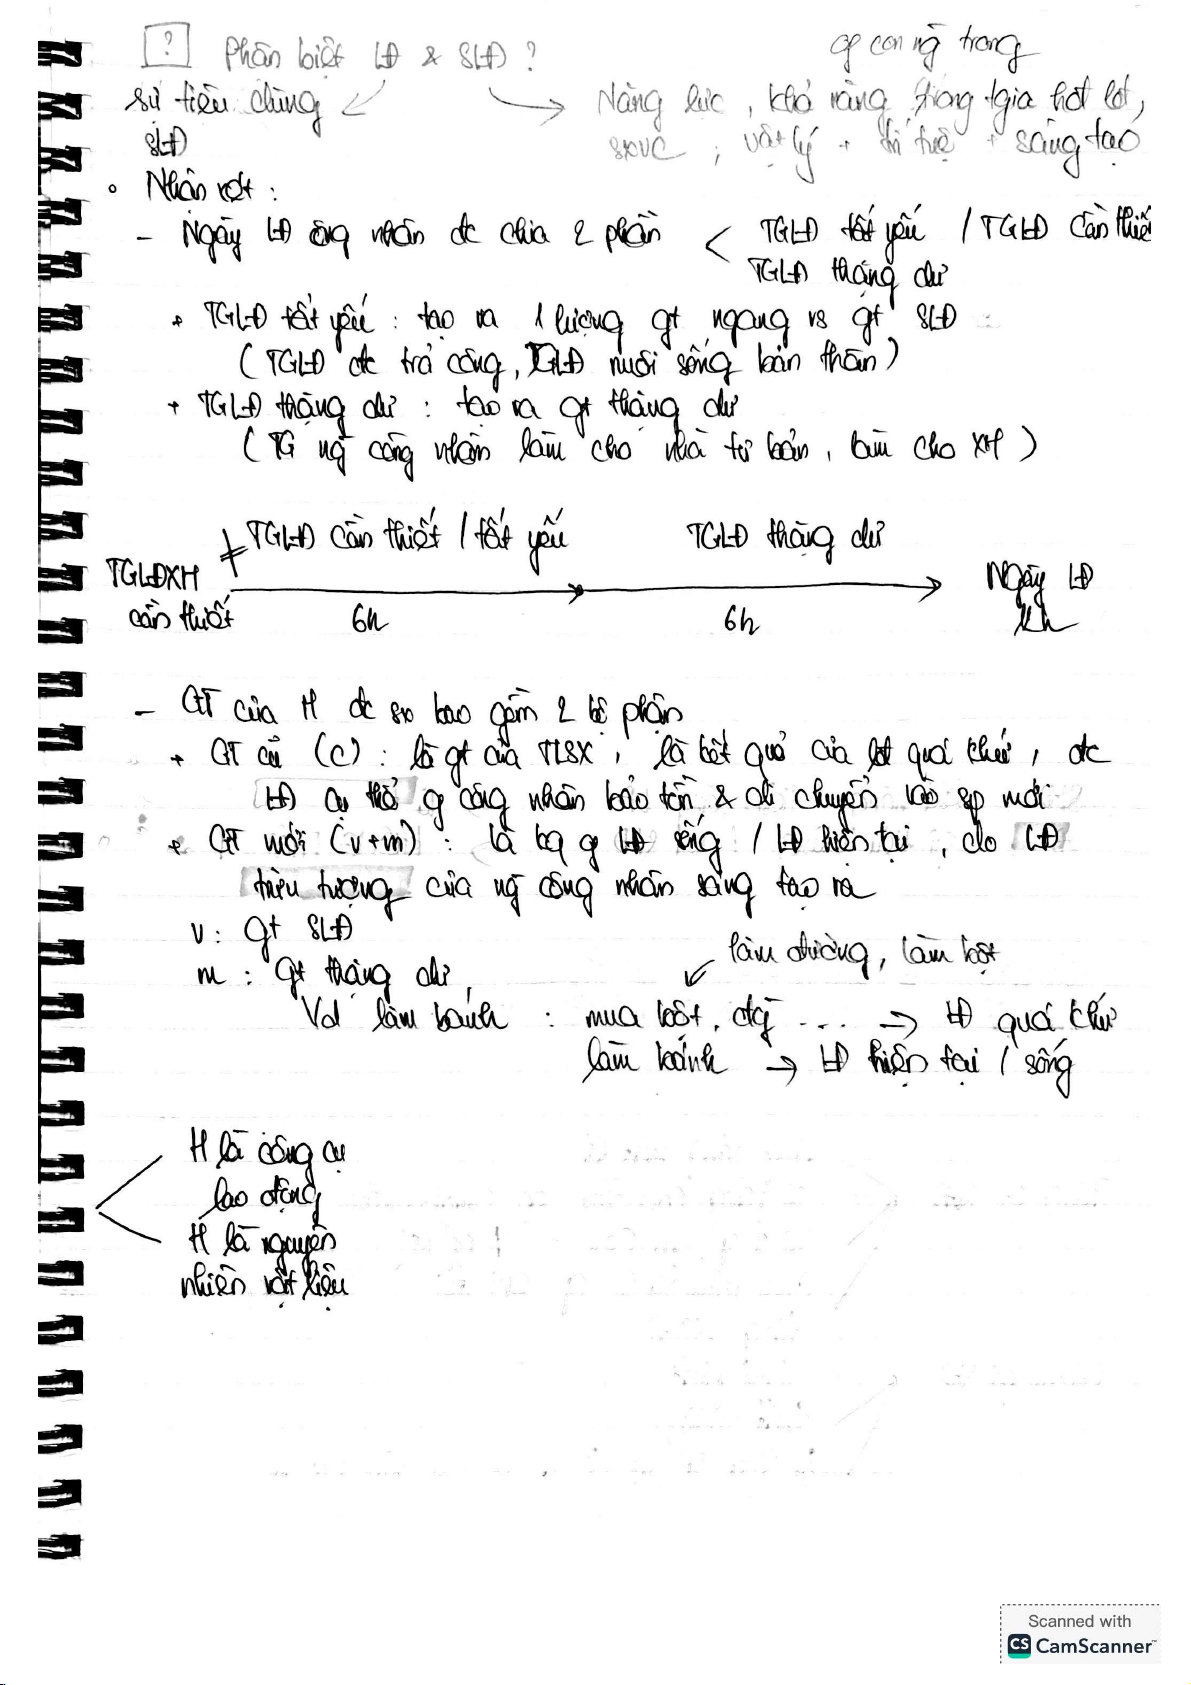 ? Phân biệt LĐ & SLĐ ?
of con ng trong
sự tiêu dùng
Năng lực, khả năng trong tgia hđt lđ,
SLĐ
sxvc; vật lý + trí tuệ + sáng tạo
Nhận xét:
- Ngày LĐ công nhân đc chia 2 phần < TGLĐ tất yếu / TGLĐ cần thiế
TGLĐ thặng dư
+ TGLĐ tất yếu: tạo ra 1 lượng gt ngang vs gt SLĐ
(TGLĐ đc trả công, TGLĐ nuôi sống bản thân)
+ TGLĐ thặng dư: tạo ra gt thặng dư
(TG ng công nhân làm cho nhà tư bản, làm cho XH)
TGLĐ cần thiết / tất yếu TGLĐ thặng dư
TGLĐXH
Ngày LĐ
cần thiết
6h 6h
- GT của H đc sx bao gồm 2 bộ phận
+ GT cũ (c): là gt của TLSX, là kết quả của lđ quá khứ, đc
LĐ cụ thể of công nhân bảo tồn & di chuyển vào sp mới
+ GT mới (v+m): là kq of LĐ sống / LĐ hiện tại, do LĐ
trừu tượng của ng công nhân sáng tạo ra
v: gt SLĐ
làm đường, làm bột
m: gt thặng dư
Vd làm bánh: mua bột, đg ... → LĐ quá khứ
làm bánh → LĐ hiện tại / sống
H là công cụ
lao động
H là nguyên
nhiên vật liệu
Scanned with
CS CamScanner